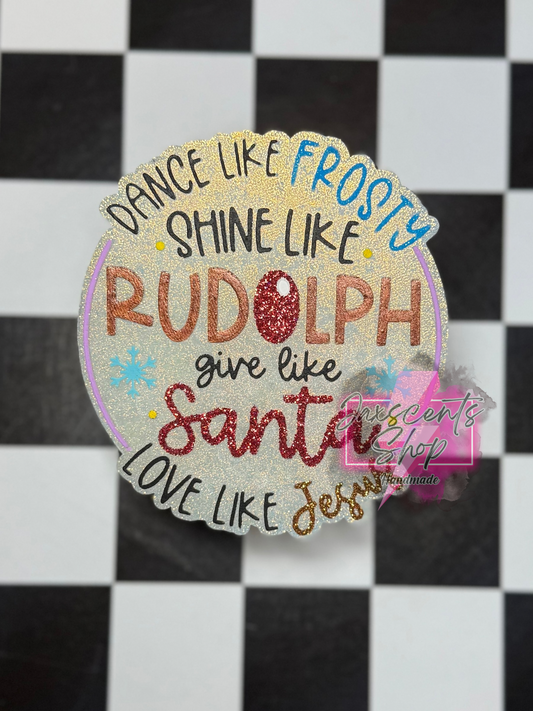 DANCE LIKE FROSTY
SHINE LIKE
RUDOLPH
give like
Santa
LOVE LIKE Jesus
Jaxscents
Shop
Handmade